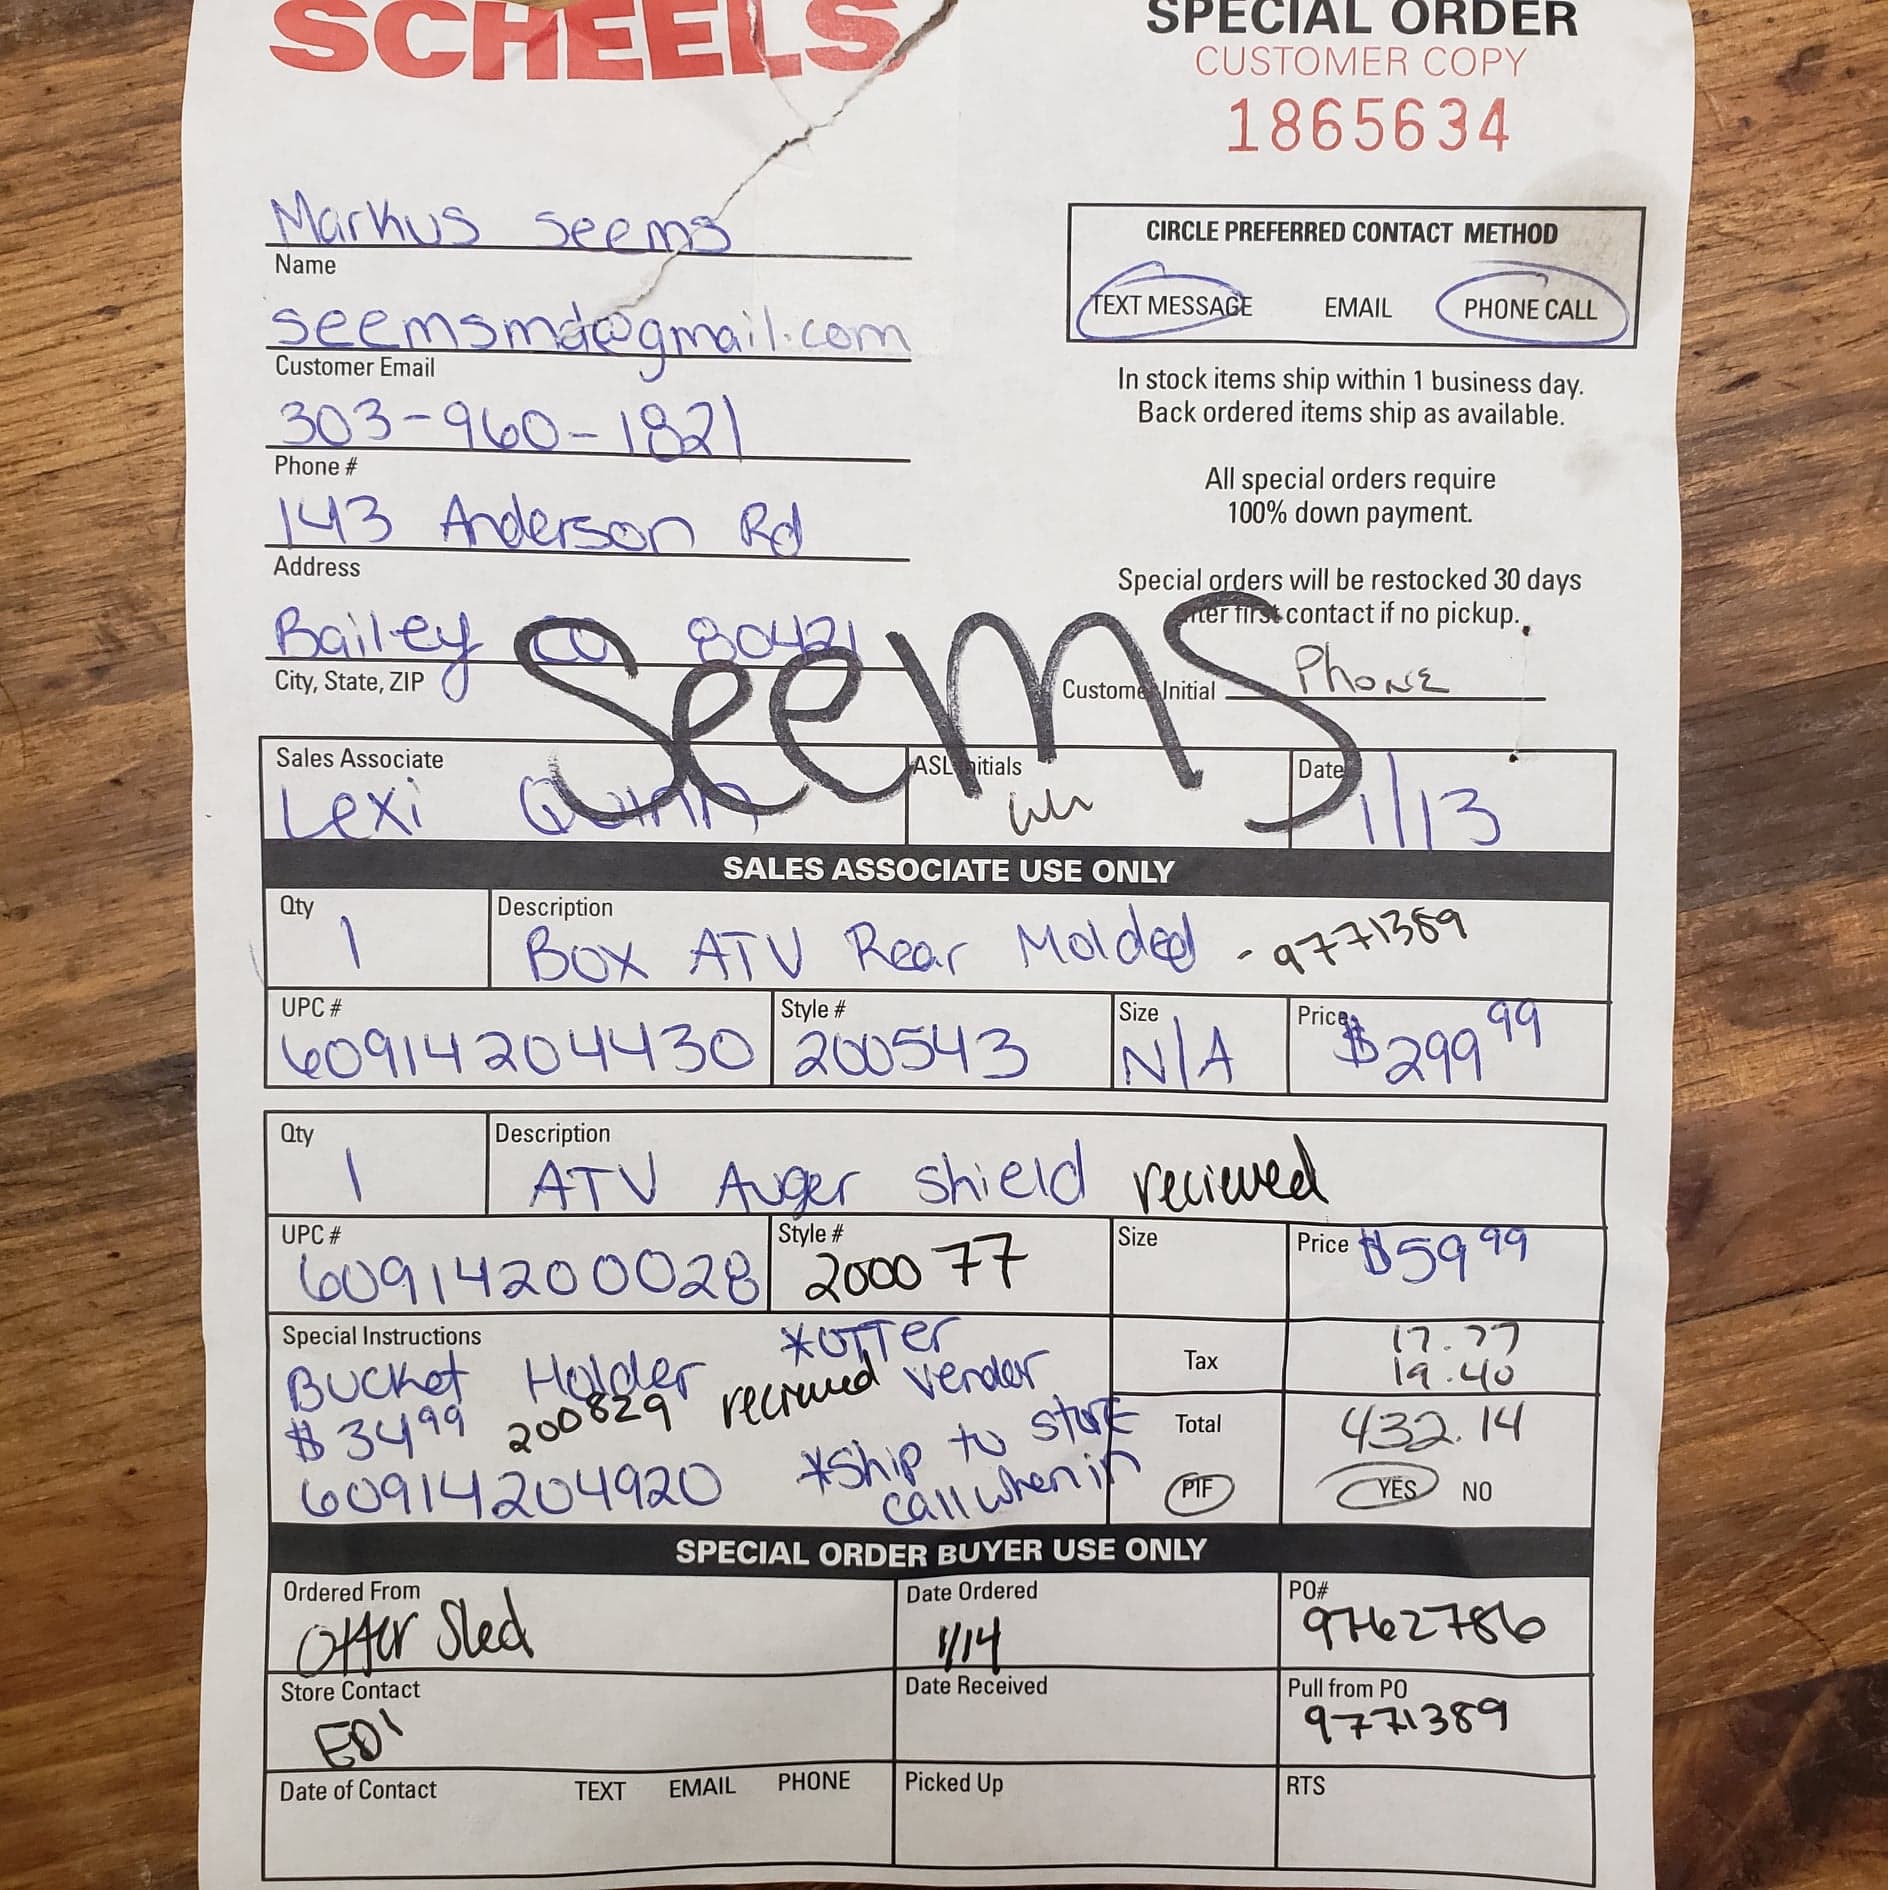 SCHEELS
SPECIAL ORDER
CUSTOMER COPY
1865634
Markus Seems
Name
seemsmd@gmail.com
Customer Email
303-960-1821
Phone #
143 Anderson Rd
Address
Bailey CO 80421
City, State, ZIP
CIRCLE PREFERRED CONTACT METHOD
TEXT MESSAGE EMAIL PHONE CALL
In stock items ship within 1 business day.
Back ordered items ship as available.
All special orders require
100% down payment.
Special orders will be restocked 30 days
after first contact if no pickup.
Customer Initial Phone
Seems
Sales Associate ASL Initials Date
Lexi Quinn 1/13
SALES ASSOCIATE USE ONLY
Qty Description
1 Box ATV Rear Molded - 9771389
UPC # Style # Size Price
60914204430 200543 N/A $299 99
Qty Description
1 ATV Auger Shield recieved
UPC # Style # Size Price
60914200028 200077 $59 99
Special Instructions
*OTTER
Bucket Holder recieved vendor
$34 99 200829
60914204920
*Ship to store
call when in
Tax 17.77
19.40
Total 432.14
PIF YES NO
SPECIAL ORDER BUYER USE ONLY
Ordered From Date Ordered PO#
Otter Sled 1/14 9762786
Store Contact Date Received Pull from PO
EDI 9771389
Date of Contact TEXT EMAIL PHONE Picked Up RTS